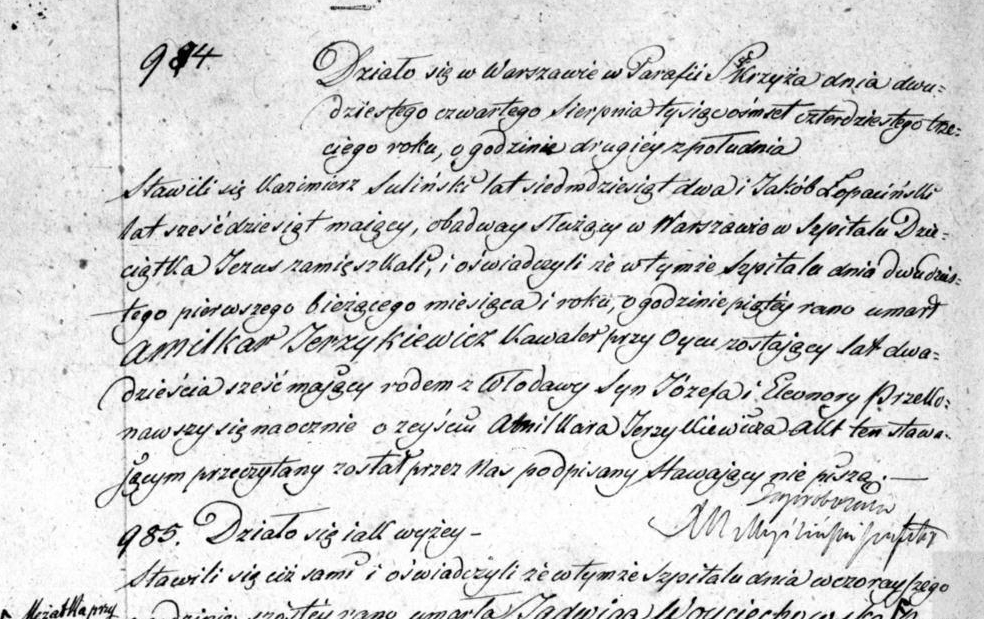 984.
Działo się w Warszawie w Parafii Sº Krzyża dnia dwu=
dziestego czwartego Sierpnia tysiąc ośmset czterdziestego trze=
ciego roku, o godzinie drugiéy z południa
Stawili się Kazimierz Suliński lat siedmdziesiąt dwa i Jakób Łopaciński
lat sześćdziesiąt maiący, obadway służący w Warszawie w Szpitalu Dzie=
ciątka Jezus zamięszkali, i oświadczyli że w tymże Szpitalu dnia dwudzies=
tego pierwszego bieżącego miesiąca i roku, o godzinie piątéy rano umarł
Amilkar Jerzykiewicz Kawaler przy Oycu zostaiący lat dwa=
dzieścia sześć maiący rodem z Włodawy Syn Józefa i Eleonory Przeko=
nawszy się naocznie o zeyściu Amilkara Jerzykiewicza Akt ten stawa=
jącym przeczytany został przez Nas podpisany Stawaiący nie piszą. —
985. Działo się iak wyżey –
Stawili się ciż sami i oświadczyli że w tymże Szpitalu dnia wczorayszego
Mężatka przy
godzinie szóstéy rano umarła Jadwiga Woyciechowska